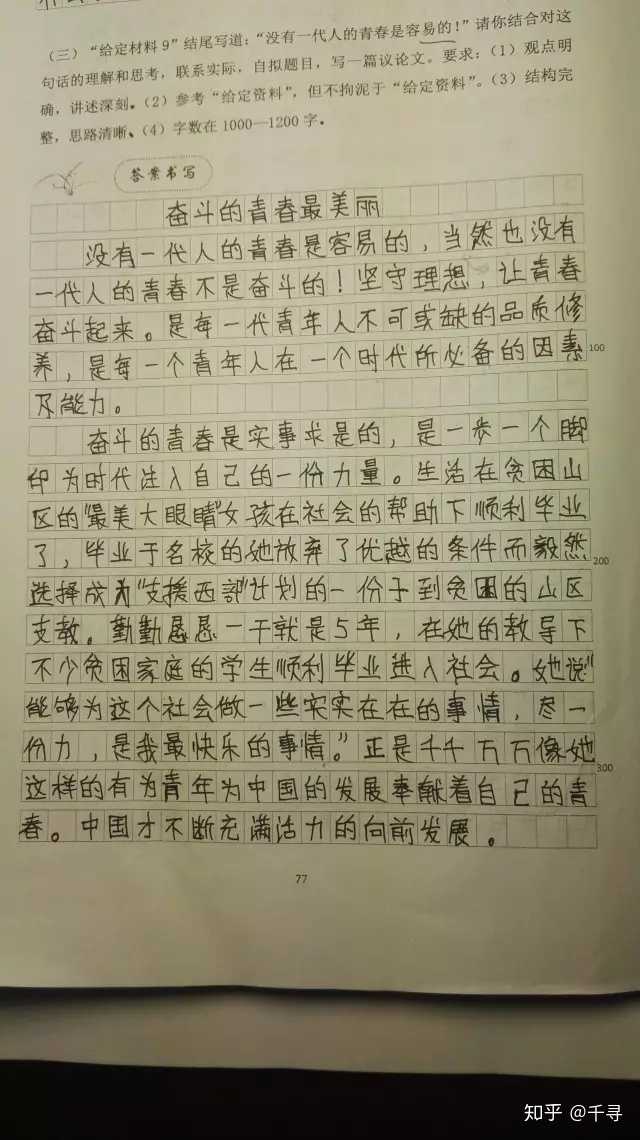 （三）“给定材料9”结尾写道：“没有一代人的青春是容易的！”请你结合对这
句话的理解和思考，联系实际，自拟题目，写一篇议论文。要求：（1）观点明
确，讲述深刻。（2）参考“给定资料”，但不拘泥于“给定资料”。（3）结构完
整，思路清晰、（4）字数在1000—1200字。
答案书写
奋斗的青春最美丽
没有一代人的青春是容易的，当然也没有
一代人的青春不是奋斗的！坚守理想，让青春
奋斗起来。是每一代青年人不可或缺的品质修
养，是每一个青年人在一个时代所必备的因素
100
及能力。
奋斗的青春是实事求是的，是一步一个脚
印为时代注入自己的一份力量。生活在贫困山
区的“最美大眼睛”女孩在社会的帮助下顺利毕业
了，毕业于名校的她放弃了优越的条件而毅然
200
选择成为“支援西部”计划的一份子到贫困的山区
支教。勤勤恳恳一干就是5年，在她的教导下
不少贫困家庭的学生顺利毕业进入社会。她说“
能够为这个社会做一些实实在在的事情，尽一
份力，是我最快乐的事情。”正是千千万万像她
300
这样的有为青年为中国的发展奉献着自己的青
春。中国才不断充满活力的向前发展。
77
知乎 @千寻